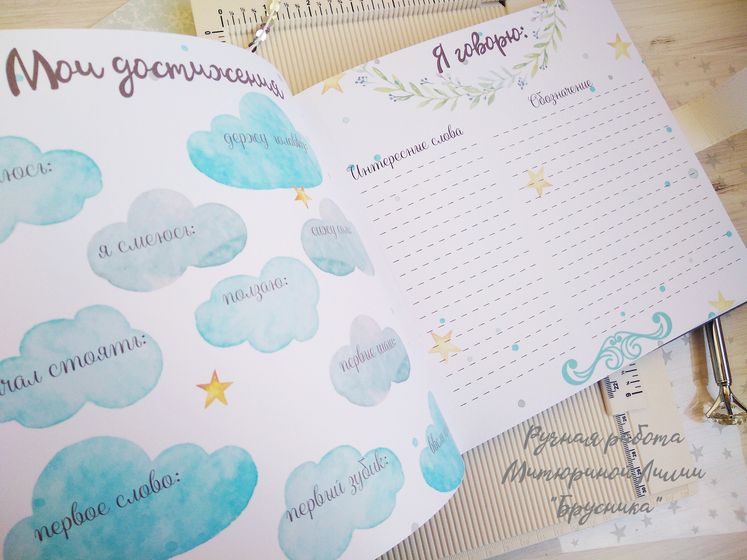 Мои достижения
держу головку:
я смеюсь:
сижу сам:
ползаю:
стоять:
первые шаги:
первое слово:
первый зубик:
Я говорю:
Интересные слова
Обозначение
Ручная работа
Митюриной Лилии
"Брусника"